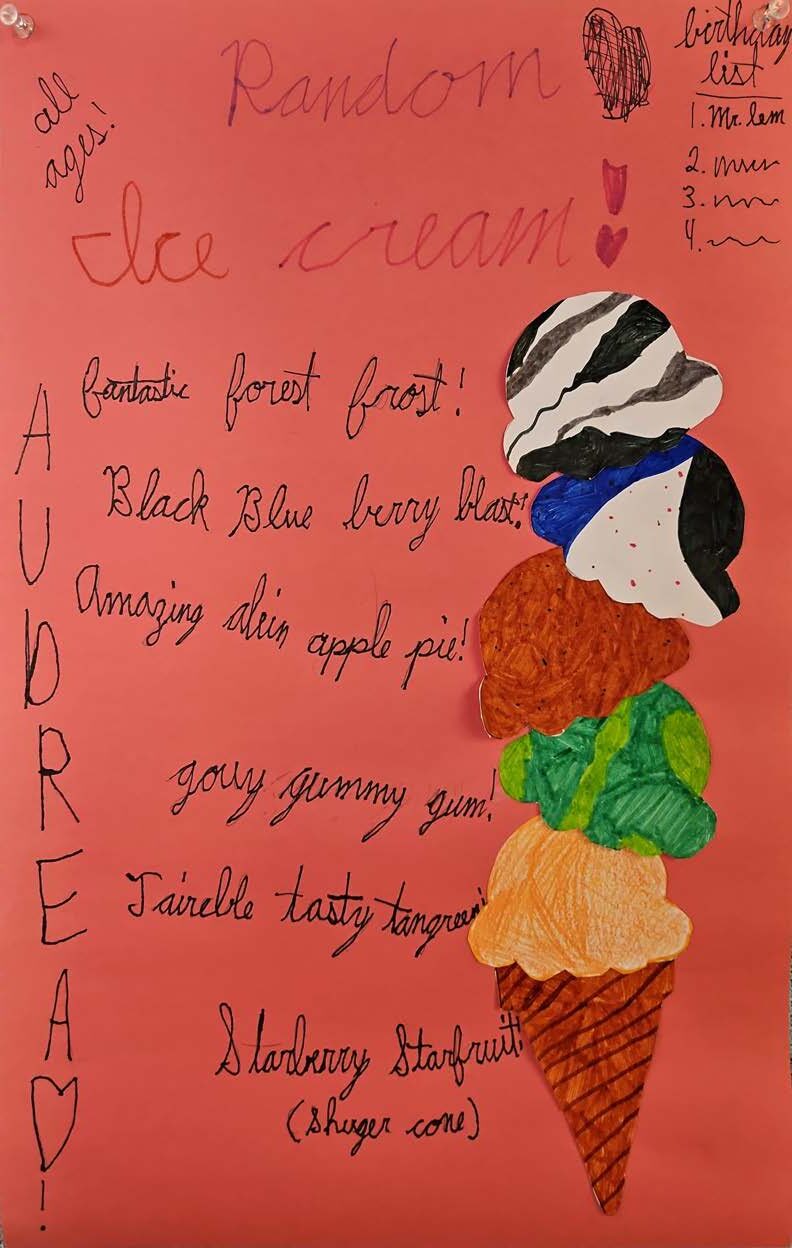 all
ages!
Random
Ice cream!
birthday
list
1. Mr. Lem
2.
3.
4.
fantastic forest frost!
Black Blue berry blast!
Amazing alein apple pie!
gouy gummy gum!
Taireble tasty tangreen!
Starberry Starfruit!
(Shuger cone)
AUDREA!